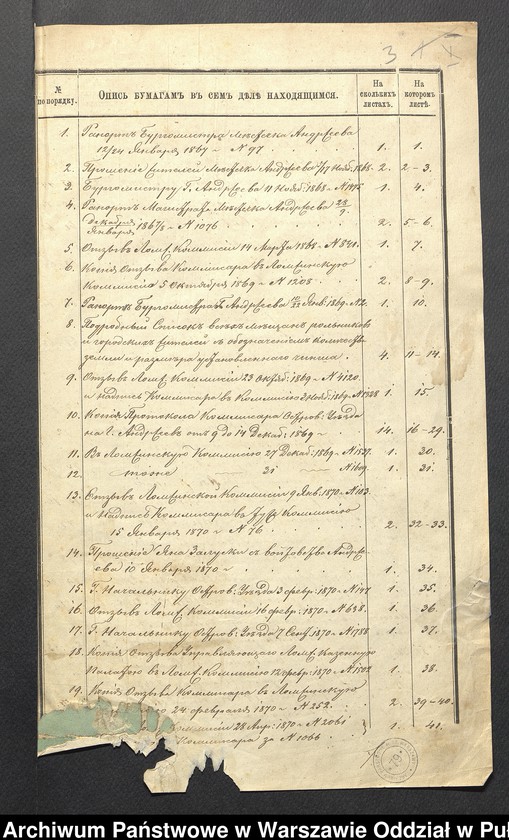 3
№ по порядку.
Опись бумагамъ въ семъ дѣлѣ находящимся.
На сколькихъ листахъ.
На которомъ листѣ.
1. Рапортъ Бургомистра Мѣстечка Андрѣева
12/24 Января 1867 - N 97. 1. 1.
2. Прошеніе жителей Мѣстечка Андрѣева 1868. 2. 2-3.
3. Бургомистру Г. Андрѣева 11 Нояб: 1868 - 1. 4.
4. Рапортъ Магистрата Мѣстечка Андрѣева 28/9
Декабря
Января 1867/8 - N 1076 2. 5-6.
5. Отзывъ Ломж. Коммисіи 14 Марта 1868 - N 841. 1. 7.
6. Копія Отзыва Коммисара въ Ломжинскую
Коммисію 5 Октября 1869 - N 1208. 2. 8-9.
7. Рапортъ Бургомистра Г. Андрѣева Янв: 1869. N 2. 1. 10.
8. Подробный Списокъ всѣхъ мѣщанъ рольниковъ
и городскихъ жителей съ обозначеніемъ количества
земли и размѣра установленнаго чинша. 4. 11-14.
9. Отзывъ Ломж. Коммисіи 23 Октяб: 1869 - N 4120.
и надпись Коммисара въ Коммисію 1869. 1. 15.
10. Копія Протокола Коммисара Остров: Уѣзда
на г. Андрѣевъ отъ 9 до 14 Декаб: 1869 - 14. 16-29.
11. Въ Ломжинскую Коммисію 27 Декаб: 1869 - N 1527. 1. 30.
12. тоже 31 - N 1609. 1. 31.
13. Отзывъ Ломжинской Коммисіи 9 Янв: 1870 - N 103.
и Надпись Коммисара въ Коммисію
15 Января 1870 - N 76. 2. 32-33.
14. Прошеніе Яна Залуски съ войтовства Андрѣ-
ева 10 Января 1870 - 1. 34.
15. Г. Начальнику Остров: Уѣзда 3 февр: 1870 - N 147 1. 35.
16. Отзывъ Ломж. Коммисіи 16 февр: 1870 - N 638. 1. 36.
17. Г. Начальнику Остров: Уѣзда 7 1870 - N 1788 1. 37.
18. Копія Отзыва Управляющаго Ломж. Казенною
Палатою въ Ломж. Коммисію 12 февр: 1870 - N 1502 1. 38.
19. Копія Отзыва Коммисара въ Ломжинскую
24 февраля 1870 - N 252. 2. 39-40.
28 Апр: 1870 - N 2061 1. 41.
Коммисара за N 1066
Archiwum Państwowe w Warszawie Oddział w Pu